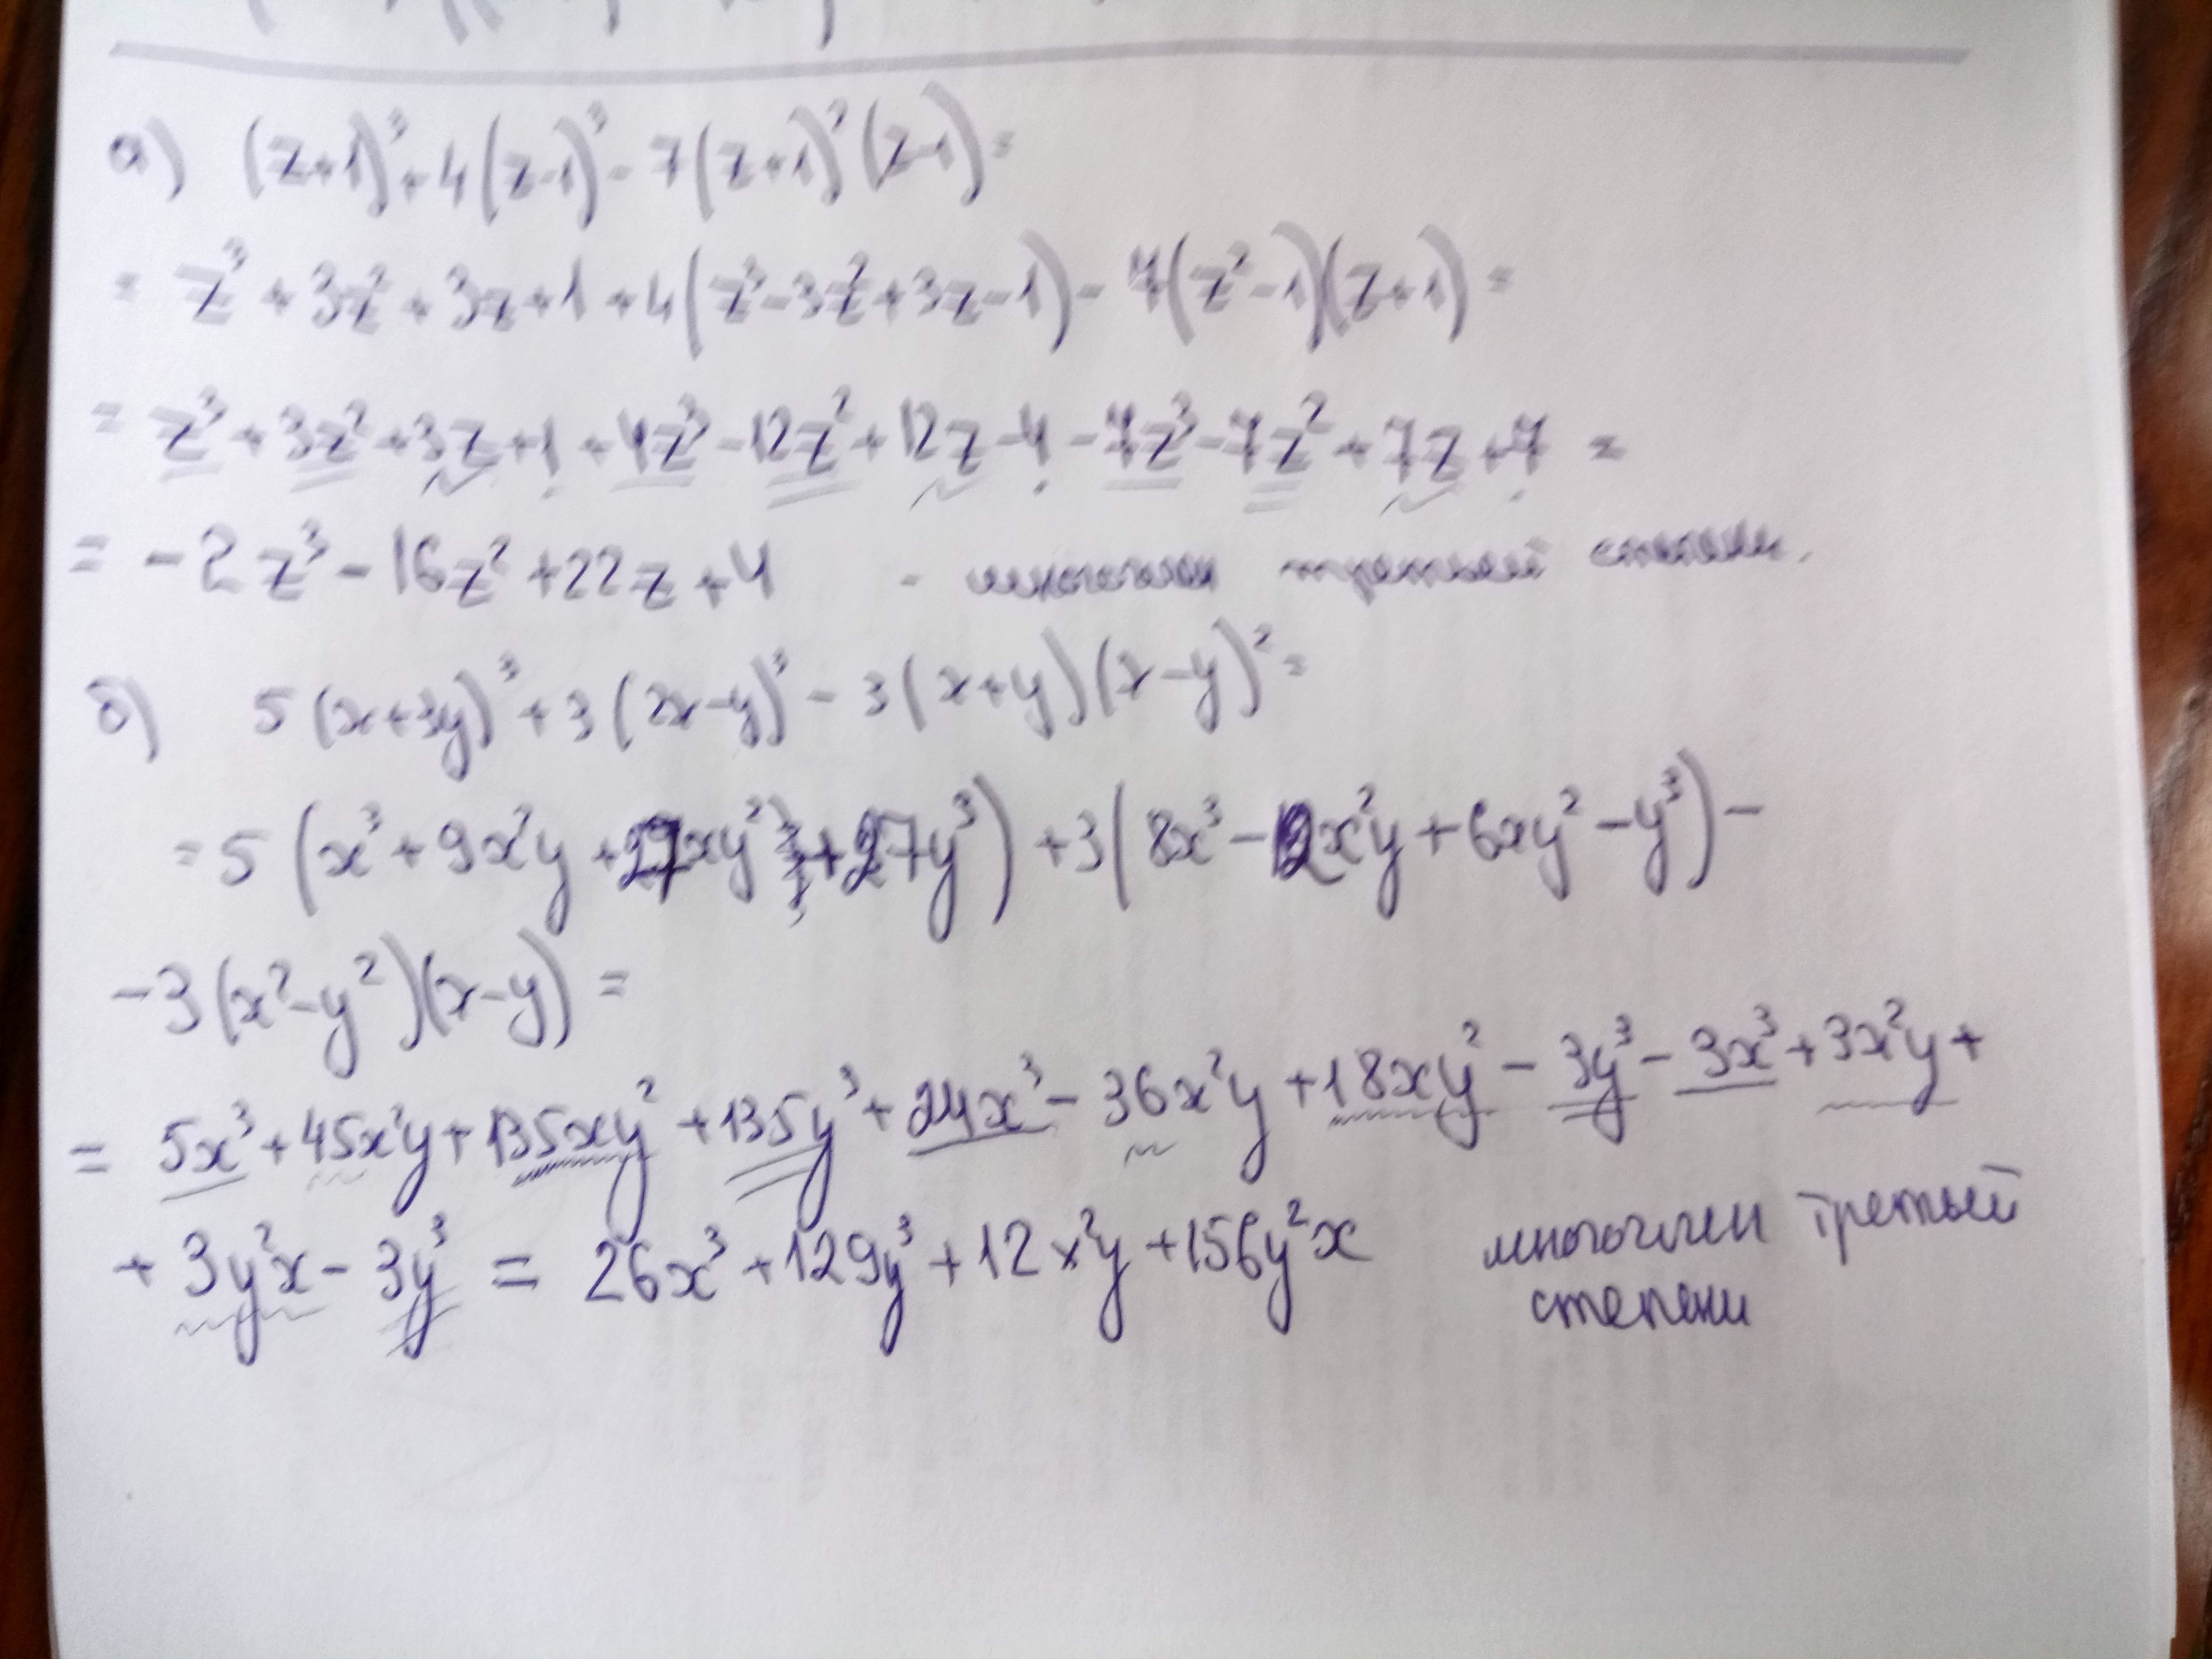 а) (z+1)³+4(z-1)³-7(z+1)²(z-1)=
= z³+3z²+3z+1+4(z³-3z²+3z-1)-7(z²-1)(z+1)=
= z³+3z²+3z+1+4z³-12z²+12z-4-7z³-7z²+7z+7 =
= -2z³-16z²+22z+4 - многочлен третьей степени.
б) 5(x+3y)³+3(2x-y)³-3(x+y)(x-y)²=
=5(x³+9x²y+27xy²+27y³)+3(8x³-12x²y+6xy²-y³)-
-3(x²-y²)(x-y)=
= 5x³+45x²y+135xy²+135y³+24x³-36x²y+18xy²-3y³-3x³+3x²y+
+3y²x-3y³ = 26x³+129y³+12x²y+156y²x многочлен третьей
степени